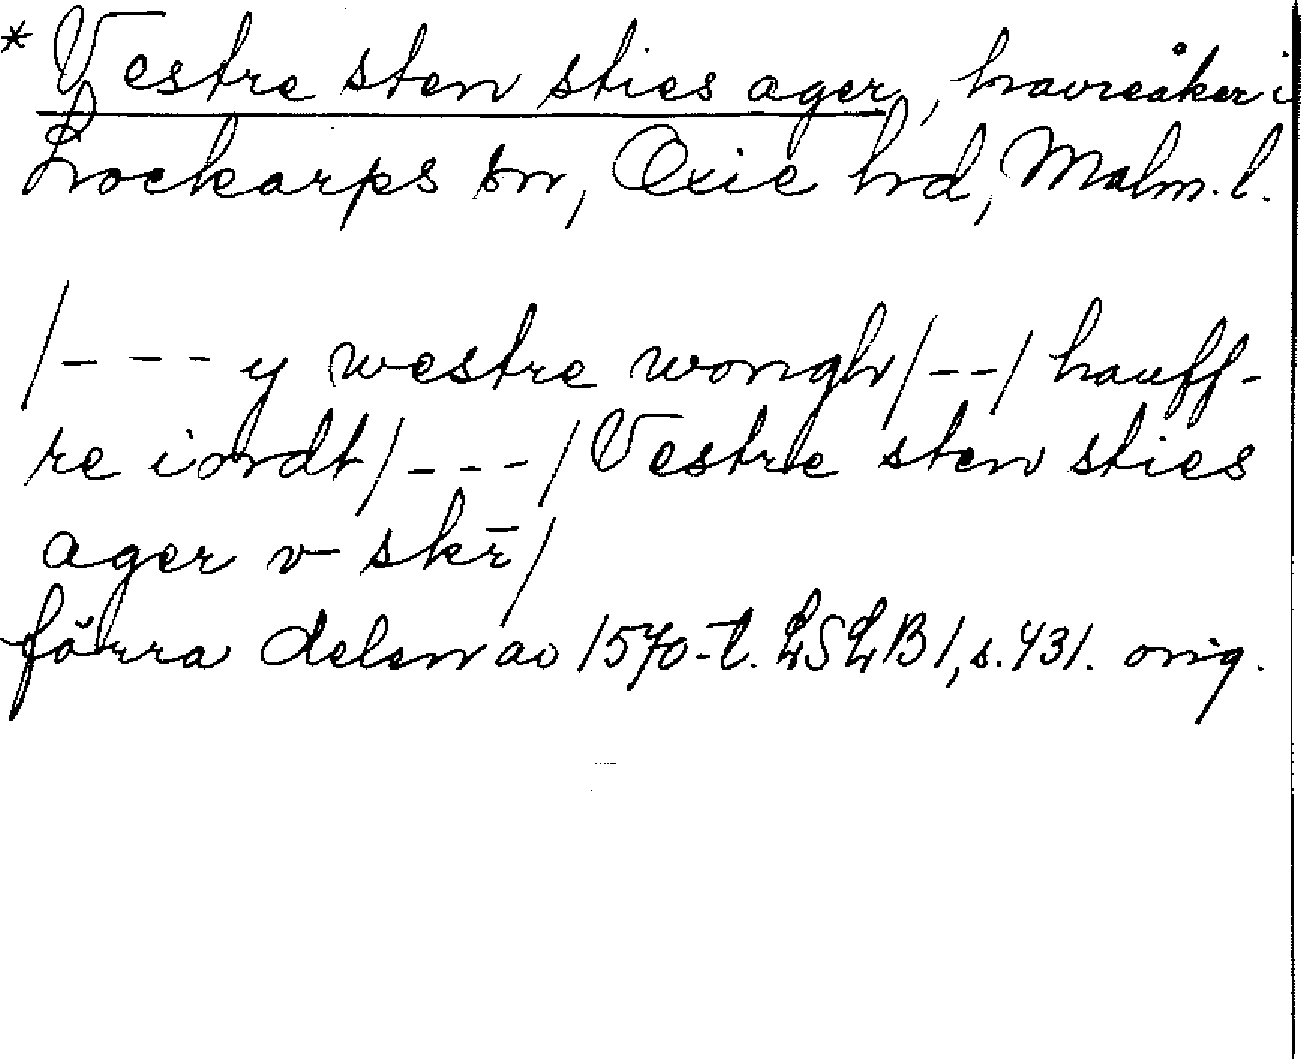 * Vestre sten sties ager, havreåker i
Lockarps sn, Oxie hd, Malm. l.
/- - - y westre wongh/- -/hauff-
re iordt/- - -/Vestre sten sties
ager v skr̄/
förra delen av 1570-t. LSLB1, s. 431. orig.